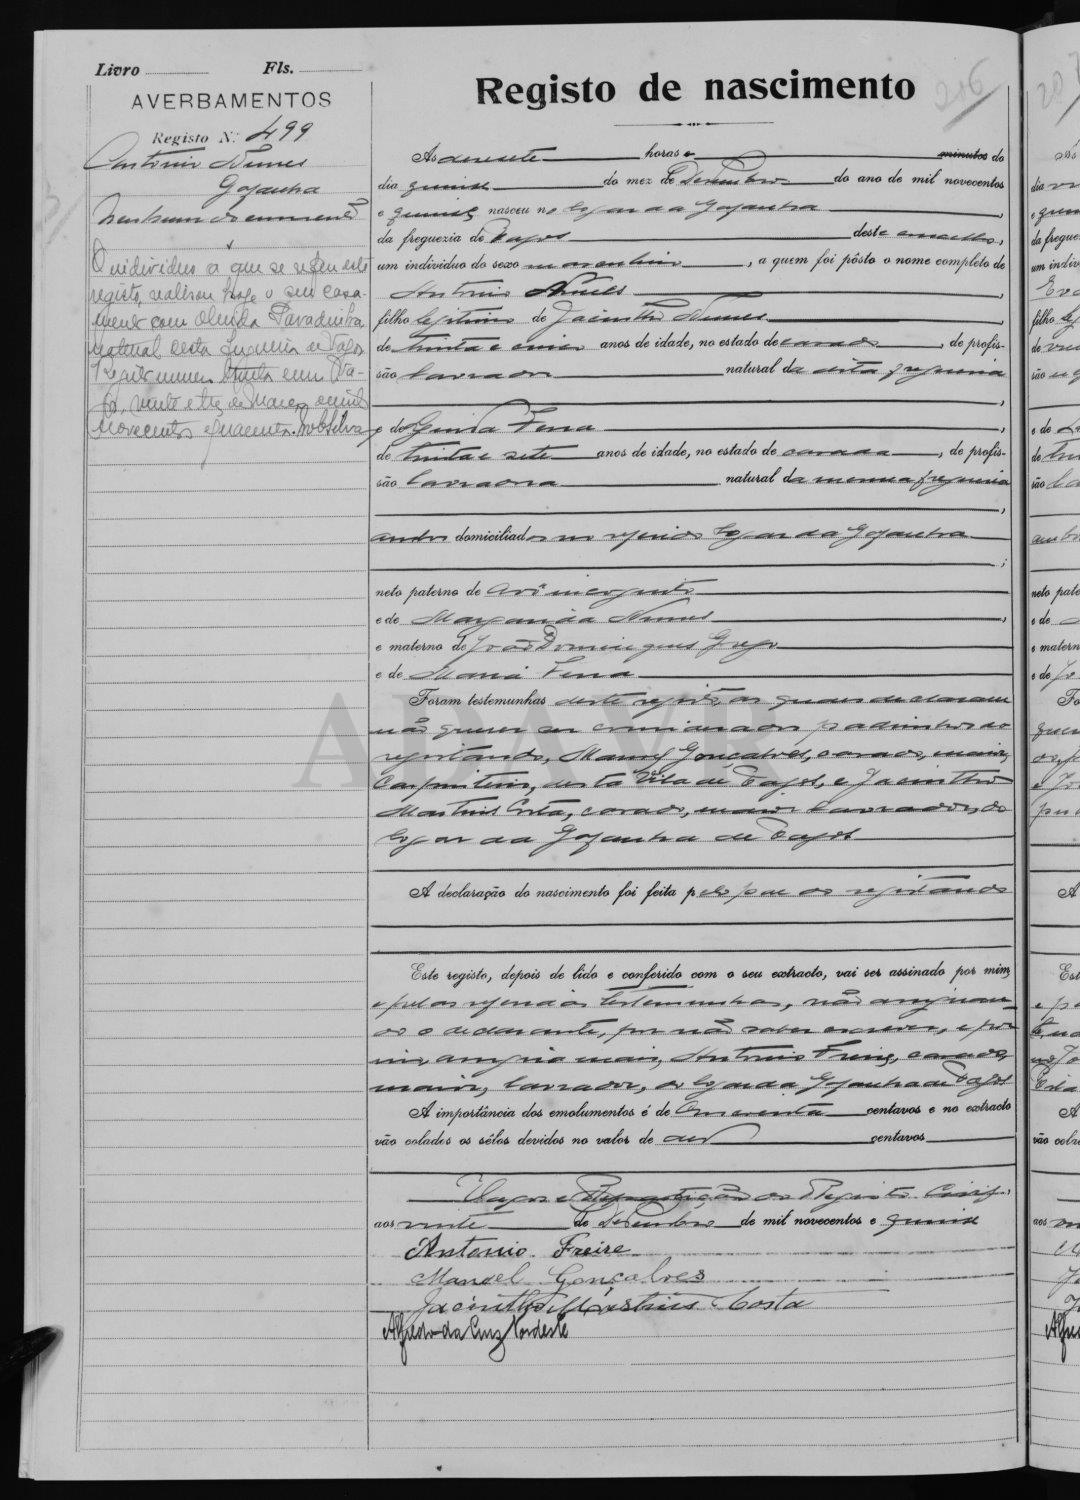 Livro Fls.
AVERBAMENTOS
Registo N.º 499
Antonio Nunes
Gafanha
Nenhum documento
O individuo a que se refere este
registo, realisou hoje o seu casa-
mento com Olinda
natural desta freguesia de Vagos
Registo numero trinta em Va-
gos, vinte e tres de Março de mil
novecentos e quarenta.
Registo de nascimento
206
Ás dezesete horas e minutos do
dia quinze do mez de Dezembro do ano de mil novecentos
e quinze nasceu no logar da Gafanha,
da freguezia de Vagos deste concelho,
um individuo do sexo masculino, a quem foi pôsto o nome completo de
Antonio Nunes,
filho legitimo de Jacintho Nunes,
de trinta e cinco anos de idade, no estado de casado, de profis-
são lavrador natural da dita freguesia,
e de Ferra,
de trinta e sete anos de idade, no estado de casada, de profis-
são lavradora natural da mesma freguesia,
ambos domiciliados no referido logar da Gafanha;
neto paterno de avô incognito
e de Margarida Nunes,
e materno de João Domingues Grego
e de Maria Ferra
Foram testemunhas deste registo, as quaes declararam
não querer ser consideradas padrinhos do
registando, Manoel Gonçalves, casado, maior,
carpinteiro, desta Vila de Vagos, e Jacintho
Martins Costa, casado, maior, lavrador, do
logar da Gafanha de Vagos
ADAVR
A declaração do nascimento foi feita pelo pae do registando
Este registo, depois de lido e conferido com o seu extracto, vai ser assinado por mim,
e pelas referidas testemunhas, não assignan-
do o declarante, por não saber escrever, e por
isso, assigna mais, Antonio Freire, casado,
maior, lavrador, do logar da Gafanha de Vagos
A importância dos emolumentos é de cincoenta centavos e no extracto
vão colados os sêlos devidos no valor de dez centavos
Vagos e Repartição do Registo Civil,
aos vinte de Dezembro de mil novecentos e quinze
Antonio Freire
Manoel Gonçalves
Jacintho Martins Costa
Alfredo da Cruz Nordeste